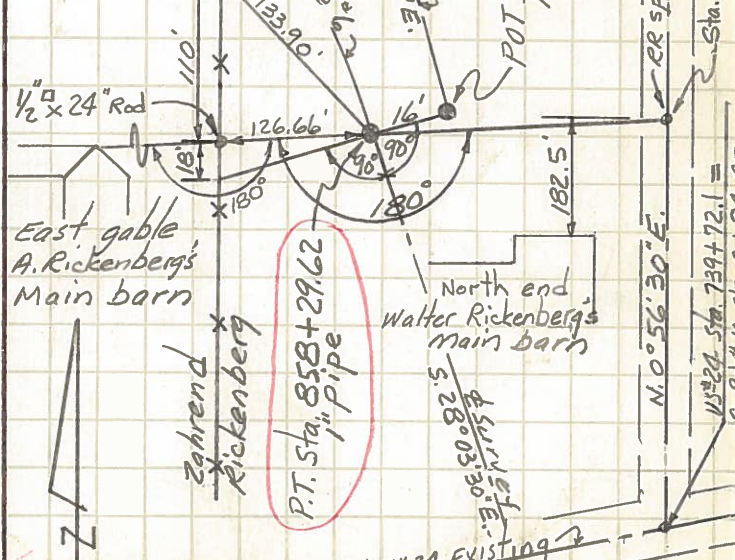 133.90'
E.
POT
RR Sp
Sta.
110'
1/2"□ x 24" Rod
126.66'
16'
18'
90°
90°
180°
180°
182.5'
East gable
A. Rickenberg's
Main barn
North end
Walter Rickenberg's
main barn
Zahrend
Rickenberg
P.T. Sta. 858+29.62
1" Pipe
℄ Survey
S. 28°03'30"E.
N. 0°56'30"E.
US#24 Sta. 739+72.1 =
Existing
N